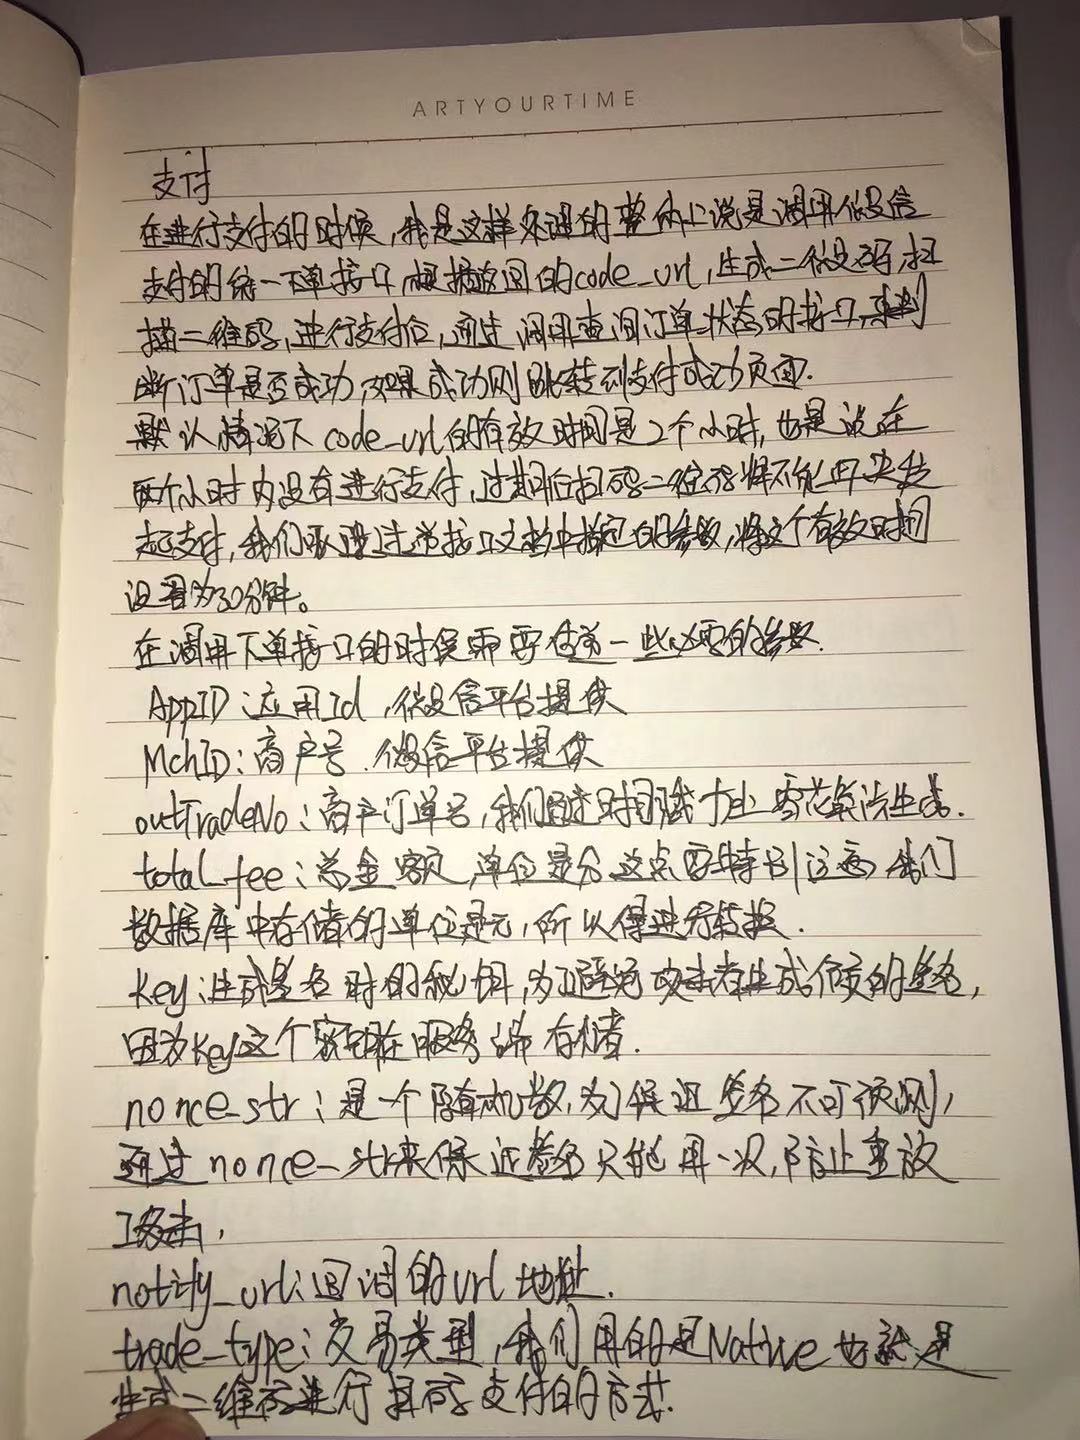 ARTYOURTIME
支付
在进行支付的时候,我是这样处理的整体上说是调用微信
支付的统一下单接口,根据返回的code_url,生成二维码,扫
描二维码,进行支付后,通过调用查询订单状态的接口,来判
断订单是否成功,如果成功则跳转到支付成功页面.
默认情况下code_url的有效时间是2个小时,也是说在
两个小时内没有进行支付,过期后扫码二维码将不能再次发
起支付,我们可通过接口文档中指定的参数,将这个有效时间
设置为30分钟。
在调用下单接口的时候需要传递一些必要的参数.
AppID:应用Id,微信平台提供
MchID:商户号.微信平台提供
outTradeNo:商户订单号,我们通过时间戳加上雪花算法生成.
total_fee:总金额,单位是分,这点要特别注意,我们
数据库中存储的单位是元,所以得进行转换.
Key:生成签名时的秘钥,为了避免攻击者生成假的签名,
因为key这个密钥在服务端存储.
nonce_str:是一个随机数,为了保证签名不可预测,
通过nonce_str来保证签名只能用一次,防止重放
攻击,
notify_url:回调的url地址.
trade_type:交易类型,我们用的是Native也就是
生成二维码进行扫码支付的方式.